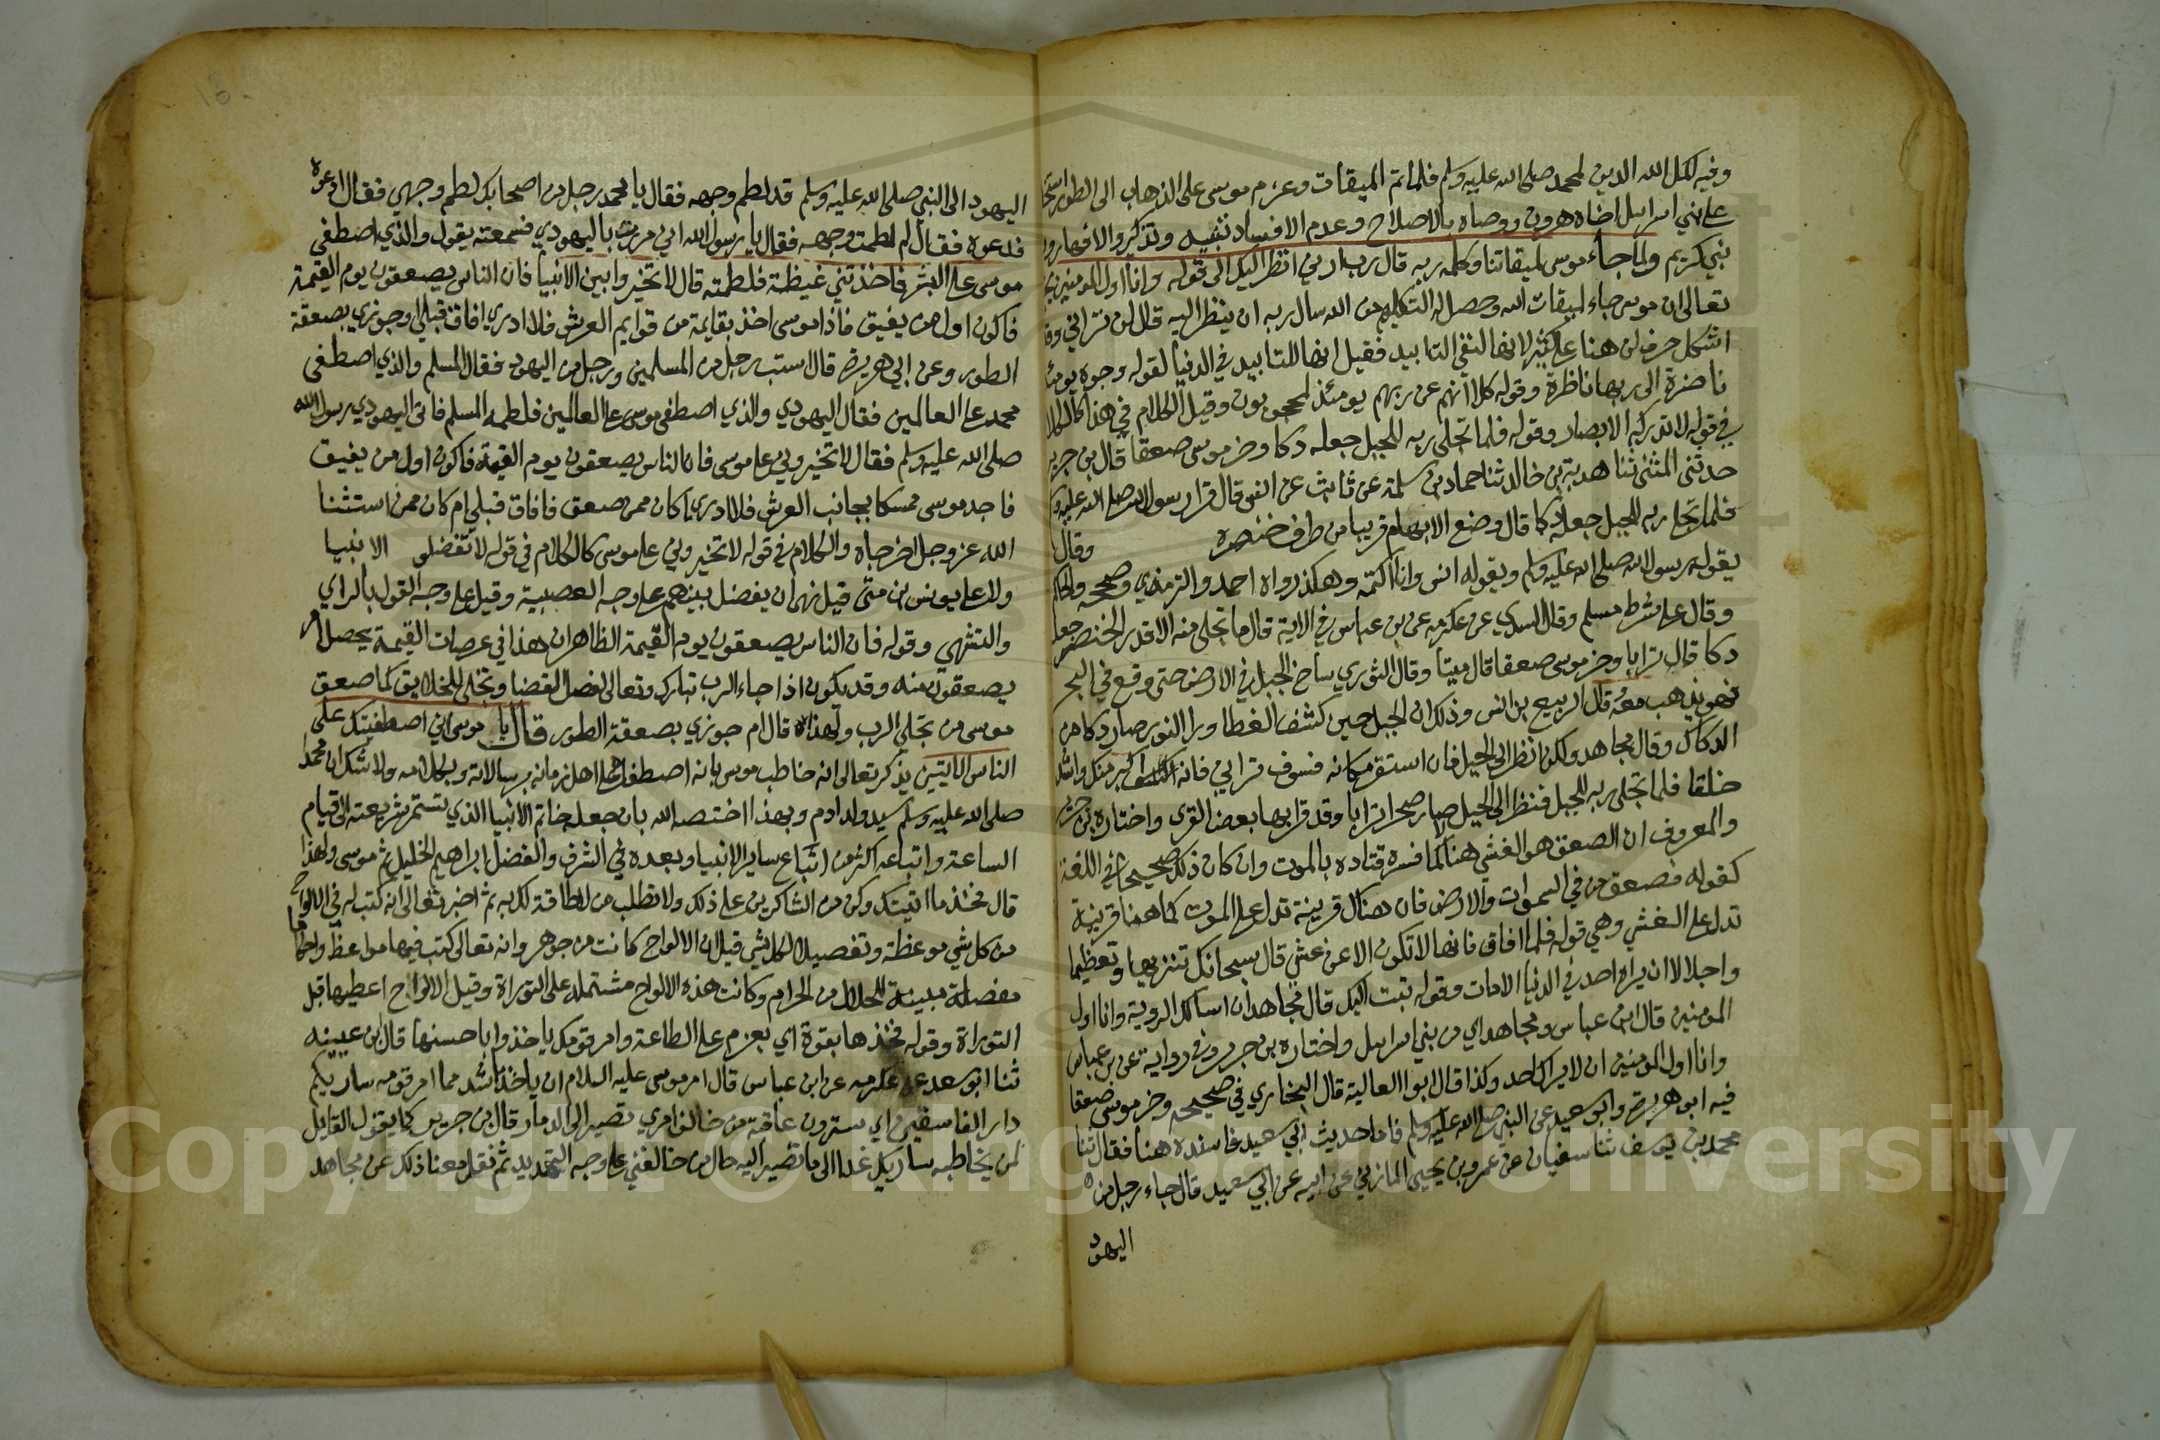 وفيه اكمل الله الدين لمحمد صلى الله عليه وسلم فلما تم الميقات وعزم موسى على الذهاب الى الطور
على بني اسرايل اخاه هرون ووصاه بالاصلاح وعدم الافساد تنبيه وتذكير والا فهارون
نبي كريم ولما جاء موسى لميقاتنا وكلمه ربه قال رب ارني انظر اليك الى قوله وانا اول المومنين
تعالى ان موسى جاء لميقات الله وحصل له التكليم من الله سال ربه ان ينظر اليه قال لن تراني وقد
اشكل حرف لن هنا على كثير لانها لنفي التابيد فقيل انها للتابيد في الدنيا لقوله وجوه يومئذ
ناضرة الى ربها ناظرة وقوله كلا انهم عن ربهم يومئذ لمحجوبون وقيل الكلام في هذا كالكلام
في قوله لا تدركه الابصار وقوله فلما تجلى ربه للجبل جعله دكا وخر موسى صعقا قال بن جرير
حدثني المثنى ثنا هدبة بن خالد ثنا حماد بن سلمة عن ثابت عن انس قال قرا رسول الله صلى الله عليه وسلم
فلما تجلى ربه للجبل جعله دكا قال وضع الابهام قريبا من طرف خنصره وقال
يقوله رسول الله صلى الله عليه وسلم ويقوله انس وانا اكتمه وهكذ رواه احمد والترمذي وصححه والحاكم
وقال على شرط مسلم وقال السدي عن عكرمه عن بن عباس في الاية قال ما تجلى منه الا قدر الخنصر جعله
دكا قال ترابا وخر موسى صعقا قال ميتا وقال الثوري ساخ الجبل في الارض حتى وقع في البحر
فهو يذهب معه قال الربيع بن انس وذلك ان الجبل حين كشف الغطا وراا النور صار دكا من
الدكاك وقال مجاهد ولكن انظر الى الجبل فان استقر مكانه فسوف تراني فانه اكبر منك واشد
خلقا فلما تجلى ربه للجبل فنظر الى الجبل صار صحرا ترابا وقد قرا بها بعض القرى واختاره بن جرير
والمعروف ان الصعق هو الغشي هنا لا كما فسره قتاده بالموت وان كان ذلك صحيحا في اللغة
كقوله فصعق من في السموات والارض فان هناك قرينة تدل على الموت كما هنا قرينة
تدل على الغشي وهي قوله فلما افاق فانها لا تكون الا عن غشي قال سبحانك تنزيها وتعظيما
واجلالا ان يراه احد في الدنيا الا مات وقوله تبت اليك قال مجاهد ان اسالك الروية وانا اول
المومنين قال ابن عباس ومجاهد اي من بني اسرايل واختاره بن جرير وفي رواية عن بن عباس
وانا اول المومنين ان لا يراك احد وكذا قال ابوا العالية قال البخاري في صحيحه وخر موسى صعقا
فيه ابو هريرة وابو سعيد عن النبي صلى الله عليه وسلم فاما حديث ابي سعيد فاسنده هنا فقال ثنا
محمد بن يوسف ثنا سفيان عن عمرو بن يحيى المازني عن ابيه عن ابي سعيد قال جاء رجل من
اليهود
اليهود الى النبي صلى الله عليه وسلم قد لطم وجهه فقال يا محمد رجل من اصحابك لطم وجهي فقال ادعوه
فدعوه فقال لم لطمت وجهه فقال يا رسول الله اني مررت باليهودي فسمعته يقول والذي اصطفى
موسى على البشر فاخذتني غيظة فلطمته قال لا تخيروا بين الانبيا فان الناس يصعقون يوم القيمة
فاكون اول من يفيق فاذا موسى اخذ بقايمة من قوايم العرش فلا ادري افاق قبلي او جوزي بصعقة
الطور وعن ابي هريرة قال استب رجل من المسلمين ورجل من اليهود فقال المسلم والذي اصطفى
محمد على العالمين فقال اليهودي والذي اصطفى موسى على العالمين فلطمه المسلم فاتى اليهودي رسول الله
صلى الله عليه وسلم فقال لا تخيروني على موسى فان الناس يصعقون يوم القيمة فاكون اول من يفيق
فاجد موسى ممسكا بجانب العرش فلا ادري اكان ممن صعق فافاق قبلي ام كان ممن استثنا
الله عز وجل اخرجاه والكلام في قوله لا تخيروني على موسى كالكلام في قوله لا تفضلو الانبيا
ولا على يونس بن متى قيل نهى ان يفضل بينهم على وجه العصبية وقيل على وجه القول بالراي
والتشهي وقوله فان الناس يصعقون يوم القيمة الظاهر ان هذا في عرصات القيمة يحصل امر
يصعقون منه وقد يكون اذا جاء الرب تبارك وتعالى لفصل القضا وتجلى للخلايق كما صعق
موسى من تجلى الرب ولهذا قال ام جوزي بصعقة الطور قال يا موسى اني اصطفيتك على
الناس الايتين يذكر تعالى انه خاطب موسى بانه اصطفاه على اهل زمانه برسالاته وبكلامه ولا شك ان محمدا
صلى الله عليه وسلم سيد ولد ادم وبهذا اختصه الله بان جعله خاتم الانبيا الذي تستمر شريعته الى قيام
الساعة واتباعه اكثر من اتباع ساير الانبيا وبعده في الشرف والفضل ابراهيم الخليل ثم موسى ولهذا
قال فخذ ما اتيتك وكن من الشاكرين على ذلك ولا تطلب من لا طاقة لك به ثم اخبر تعالى انه كتب له في الالواح
من كل شي موعظة وتفصيلا لكل شي قيل ان الالواح كانت من جوهر وانه تعالى كتب فيها مواعظ واحكاما
مفصلة مبينة للحلال من الحرام وكانت هذه الالواح مشتمله على التوراة وقيل الالواح اعطيها قبل
التوراة وقوله فخذها بقوة اي بعزم على الطاعة وامر قومك ياخذوا باحسنها قال بن عيينه
ثنا ابو سعد عن عكرمه عن ابن عباس قال امر موسى عليه السلام ان ياخذ باشد مما امر قومه ساريكم
دار الفاسقين اي سترون عاقبة من خالف امري تصير الى الدمار قال بن جرير كما يقول القايل
لمن يخاطبه ساريك غدا الى ما تصير اليه حال من خالفني على وجه التهديد ثم نقل معنا ذلك عن مجاهد
Copyright © King Saud University